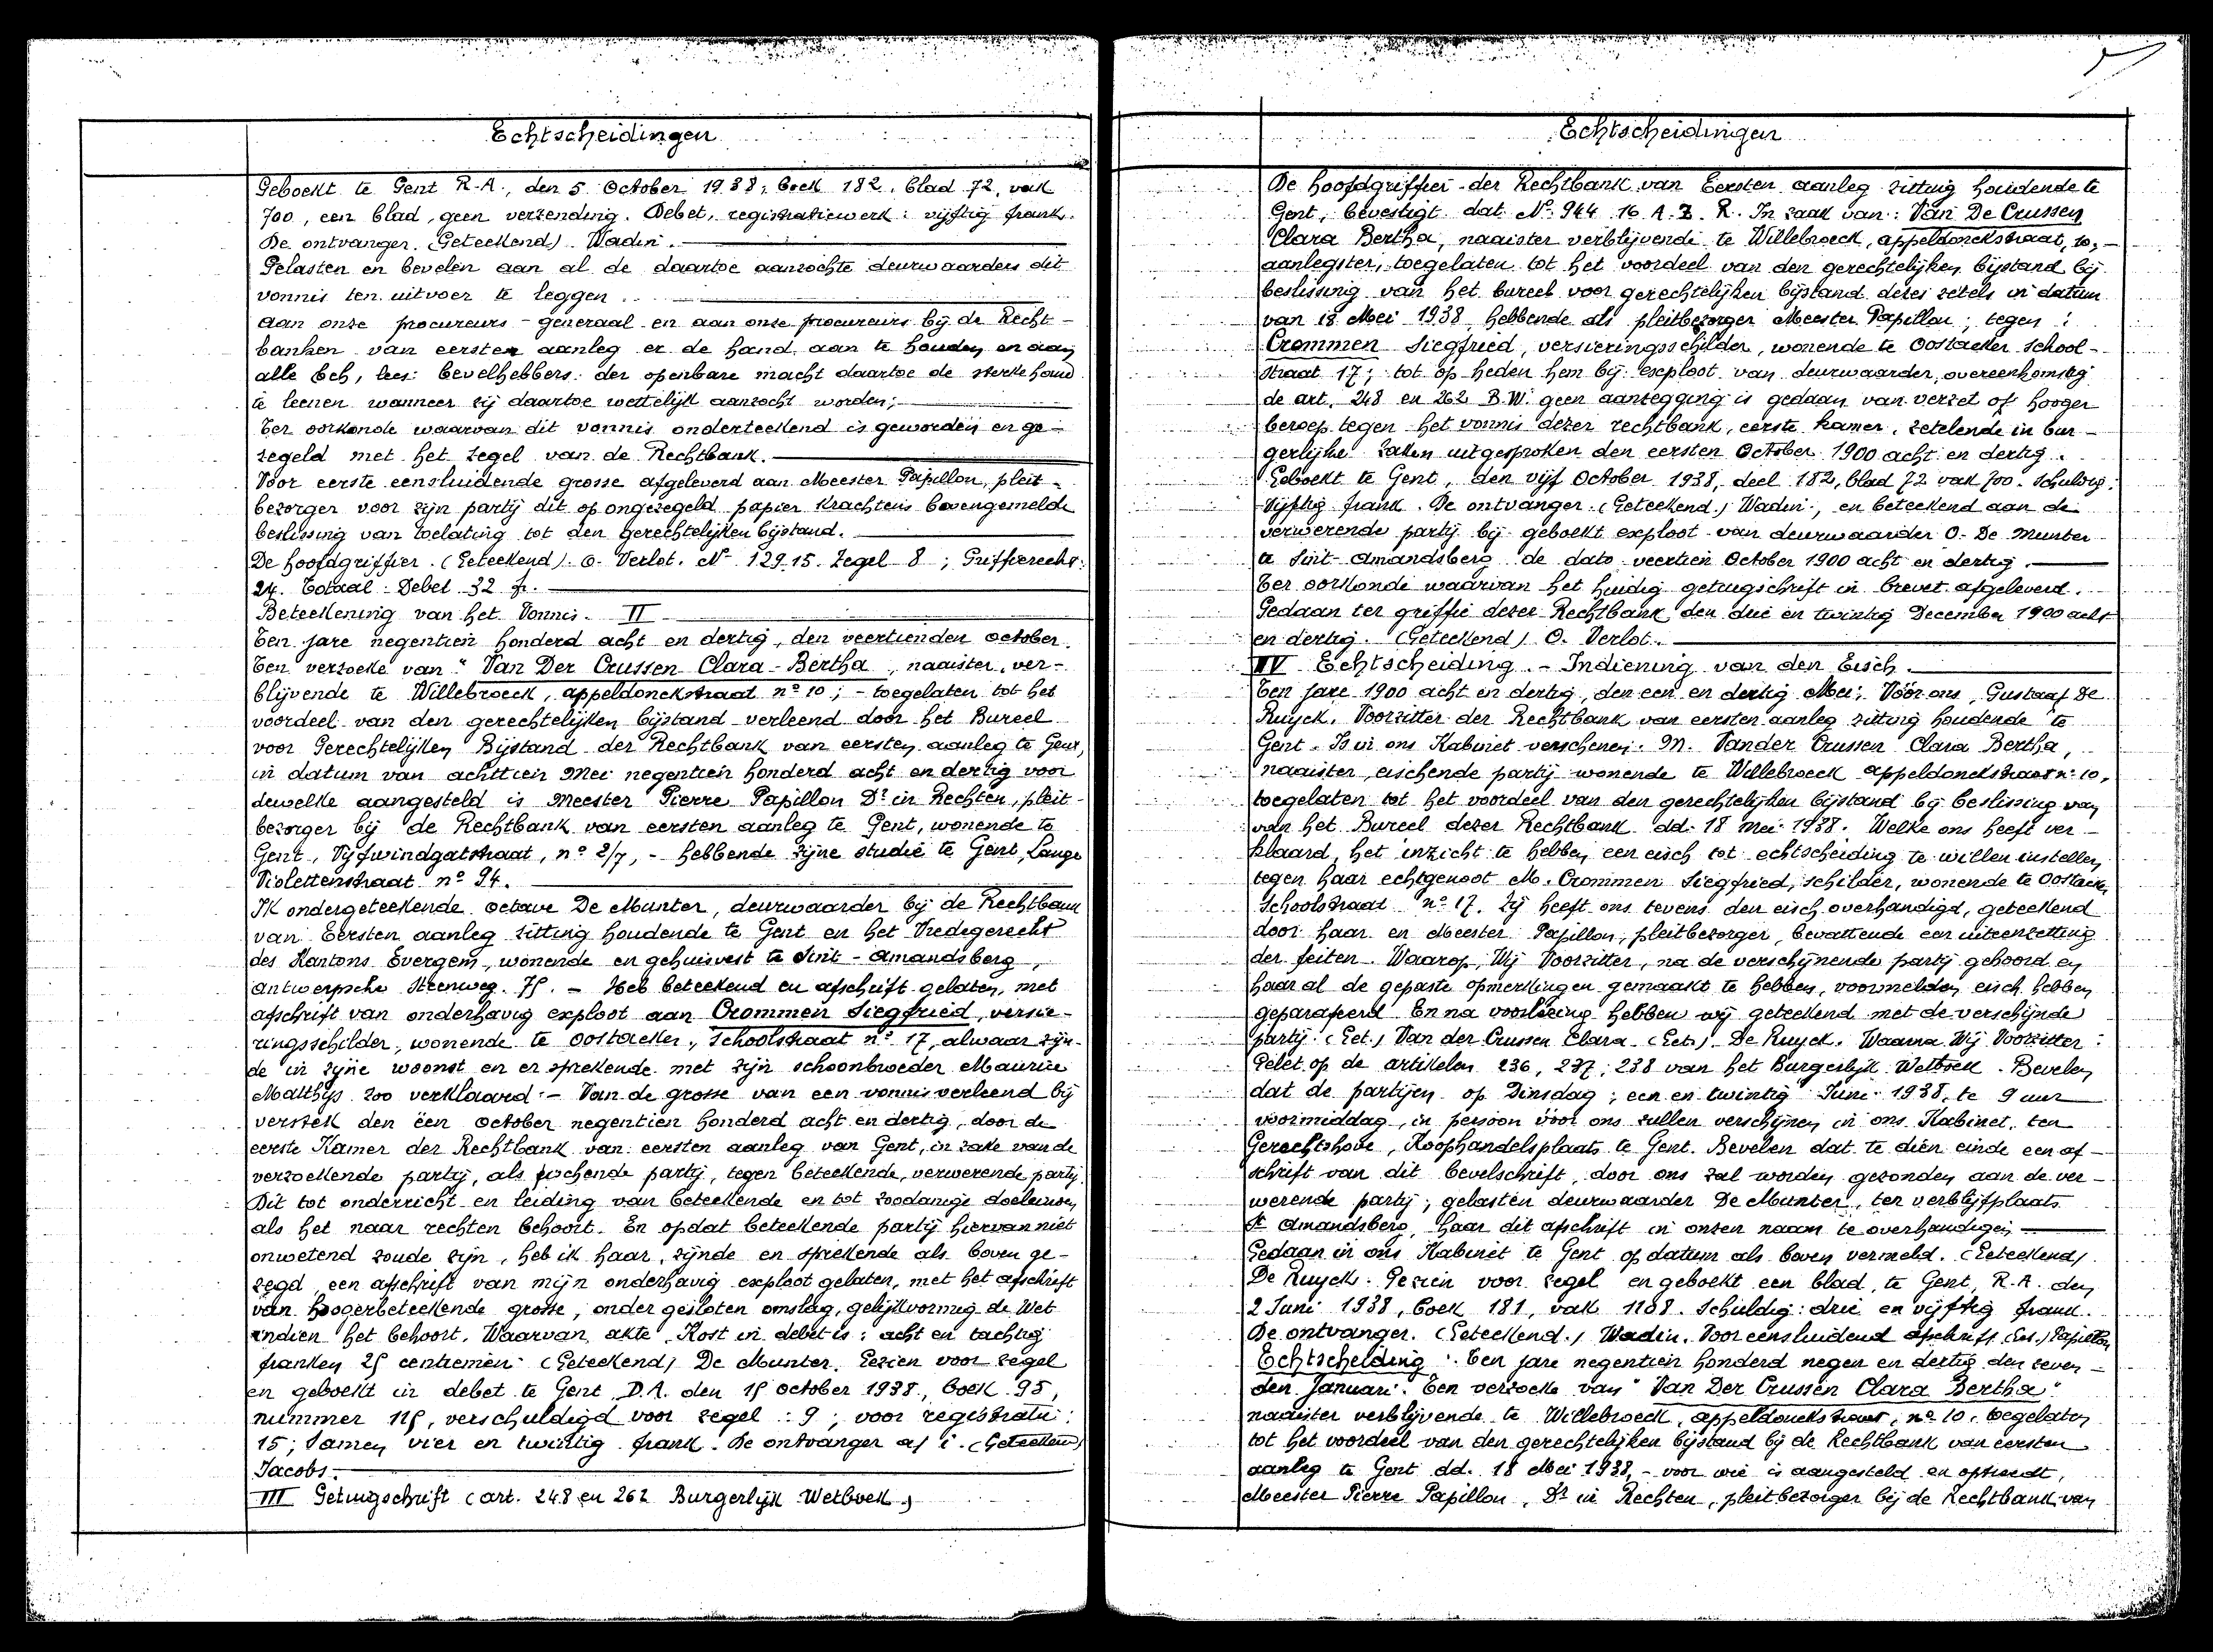 Echtscheidingen
Geboekt te Gent R.A., den 5 October 1938, boek 182, blad 72, vak
700, een blad, geen verzending. Debet, registratiewerk: vijftig frank.
De ontvanger. (Geteekend) Wadin.
Gelasten en bevelen aan al de daartoe aanzochte deurwaarders dit
vonnis ten uitvoer te leggen.
Aan onze procureurs-generaal en aan onze procureurs bij de Recht-
banken van eersten aanleg er de hand aan te houden en aan
alle beh, lees: bevelhebbers der openbare macht daartoe de sterke hand
te leenen wanneer zij daartoe wettelijk aanzocht worden;
Ter oorkonde waarvan dit vonnis onderteekend is geworden en ge-
zegeld met het zegel van de Rechtbank.
Voor eerste eensluidende grosse afgeleverd aan Meester Papillon, pleit-
bezorger voor zijn partij dit op ongezegeld papier krachtens bovengemelde
beslissing van toelating tot den gerechtelijken bijstand.
De hoofdgriffier. (Geteekend) O. Verlot. N° 129-15. Zegel 8; Griffierecht:
24. Totaal: Debet 32 fr.
Beteekening van het Vonnis. II
Ten jare negentien honderd acht en dertig, den veertienden October.
Ten verzoeke van "Van Der Crussen Clara-Bertha, naaister, ver-
blijvende te Willebroeck, appeldonckstraat n° 10; - toegelaten tot het
voordeel van den gerechtelijken bijstand verleend door het Bureel
voor Gerechtelijken Bijstand der Rechtbank van eersten aanleg te Gent,
in datum van achttien Mei negentien honderd acht en dertig voor
dewelke aangesteld is Meester Pierre Papillon Dr in Rechten, pleit-
bezorger bij de Rechtbank van eersten aanleg te Gent, wonende te
Gent, Vijfwindgatstraat, n° 2/7, - hebbende zijne studie te Gent, Lange
Violettenstraat n° 94.
Ik ondergeteekende Octave De Munter, deurwaarder bij de Rechtbank
van Eersten aanleg zitting houdende te Gent en het Vredegerecht
des Kantons Evergem, wonende en gehuisvest te Sint-Amandsberg,
Antwerpsche Steenweg. 75. - Heb beteekend en afschrift gelaten, met
afschrift van onderhavig exploot aan Crommen Siegfried, versie-
ringsschilder, wonende te Oostacker, Schoolstraat n° 17, alwaar zijn-
de in zijne woonst en er sprekende met zijn schoonbroeder Maurice
Matthys zoo verklaard: - Van de grosse van een vonnis verleend bij
verstek den één October negentien honderd acht en dertig, door de
eerste Kamer der Rechtbank van eersten aanleg van Gent, in zake van de
verzoekende partij, als eischende partij, tegen beteekende, verwerende partij.
Dit tot onderricht en leiding van beteekende en tot zoodanige doeleinden
als het naar rechten behoort. En opdat beteekende partij hiervan niet
onwetend zoude zijn, heb ik haar, zijnde en sprekende als boven ge-
zegd een afschrift van mijn onderhavig exploot gelaten, met het afschrift
van hoogerbeteekende grosse, onder gesloten omslag, gelijkvormig de Wet
indien het behoort. Waarvan akte. Kost in debet is: acht en tachtig
franken 25 centiemen (Geteekend) De Munter. Gezien voor zegel
en geboekt in debet te Gent, D.A. den 15 October 1938, boek 95,
nummer 115, verschuldigd voor zegel: 9; voor registratie:
15; Samen vier en twintig frank. De ontvanger a/ i. (Geteekend)
Jacobs.
III Getuigschrift (art. 248 en 262 Burgerlijk Wetboek)
Echtscheidingen
De hoofdgriffier der Rechtbank van Eersten aanleg zitting houdende te
Gent, bevestigt dat N° 944 16 A.Z.R. In zaak van: Van De Crussen
Clara Bertha, naaister verblijvende te Willebroeck, appeldonckstraat, 10; -
aanlegster, toegelaten tot het voordeel van den gerechtelijken bijstand bij
beslissing van het bureel voor gerechtelijken bijstand dezes zetels in datum
van 18 Mei 1938 hebbende als pleitbezorger Meester Papillon; tegen:
Crommen Siegfried, versieringsschilder, wonende te Oostacker school-
straat 17; tot op heden hem bij exploot van deurwaarder, overeenkomstig
de art. 248 en 262 B.W. geen aanzegging is gedaan van verzet of hooger
beroep tegen het vonnis dezer rechtbank, eerste kamer, zetelende in bur-
gerlijke zaken uitgesproken den eersten October 1900 acht en dertig.
Geboekt te Gent, den vijf October 1938, deel 182, blad 72 vak 700. Schuldig:
Vijftig frank. De ontvanger. (Geteekend.) Wadin., en beteekend aan de
verwerende partij bij geboekt exploot van deurwaarder O. De Munter
te Sint-Amandsberg de dato veertien October 1900 acht en dertig.
Ter oorkonde waarvan het huidig getuigschrift in brevet afgeleverd.
Gedaan ter griffie dezer Rechtbank den drie en twintig December 1900 acht
en dertig. (Geteekend) O. Verlot.
IV Echtscheiding. - Indiening van den Eisch.
Ten jare 1900 acht en dertig, den een en dertig Mei; Vóór ons, Gustaaf De
Ruyck, Voorzitter der Rechtbank van eersten aanleg zitting houdende te
Gent. Is in ons Kabinet verschenen: M. Vander Crussen Clara Bertha,
naaister, eischende partij wonende te Willebroeck appeldonckstraat n° 10,
toegelaten tot het voordeel van den gerechtelijken bijstand bij beslissing van
van het Bureel dezer Rechtbank dd. 18 Mei 1938. Welke ons heeft ver-
klaard, het inzicht te hebben een eisch tot echtscheiding te willen instellen
tegen haar echtgenoot M. Crommen Siegfried, schilder, wonende te Oostacker,
Schoolstraat n° 17. Zij heeft ons tevens den eisch overhandigd, geteekend
door haar en Meester Papillon, pleitbezorger, bevattende een uiteenzetting
der feiten. Waarop, Wij Voorzitter, na de verschijnende partij gehoord en
haar al de gepaste opmerkingen gemaakt te hebben, voormelden eisch hebben
geparafeerd. En na voorlezing hebben wij geteekend met de verschijnde
partij. (Get.) Van der Crussen Clara (Get.) De Ruyck. Waarna Wij Voorzitter:
Gelet op de artikelen 236, 237, 238 van het Burgerlijk Wetboek. Bevelen
dat de partijen op Dinsdag, een en twintig Juni 1938, te 9 uur
voormiddag, in persoon vóór ons zullen verschijnen in ons Kabinet, ten
Gerechtshove, Koophandelsplaats te Gent. Bevelen dat te dien einde een af-
schrift van dit bevelschrift, door ons zal worden gezonden aan de ver-
werende partij, gelasten deurwaarder De Munter, ter verblijfplaats
St Amandsberg, haar dit afschrift in onzen naam te overhandigen
Gedaan in ons Kabinet te Gent op datum als boven vermeld. (Geteekend)
De Ruyck. Gezien voor zegel en geboekt een blad, te Gent, R.A. den
2 Juni 1938, boek 181, vak 1188. Schuldig: drie en vijftig frank.
De ontvanger. (Geteekend.) Wadin. Voor eensluidend afschrift (Get.) Papillon
Echtscheiding. Ten jare negentien honderd negen en dertig den zeven-
den Januari. Ten verzoeke van "Van Der Crussen Clara Bertha"
naaister verblijvende te Willebroeck, appeldonckstraat, n° 10, toegelaten
tot het voordeel van den gerechtelijken bijstand bij de Rechtbank van eersten
aanleg te Gent dd. 18 Mei 1938, - voor wie is aangesteld en optreedt,
Meester Pierre Papillon, Dr in Rechten, pleitbezorger bij de Rechtbank van